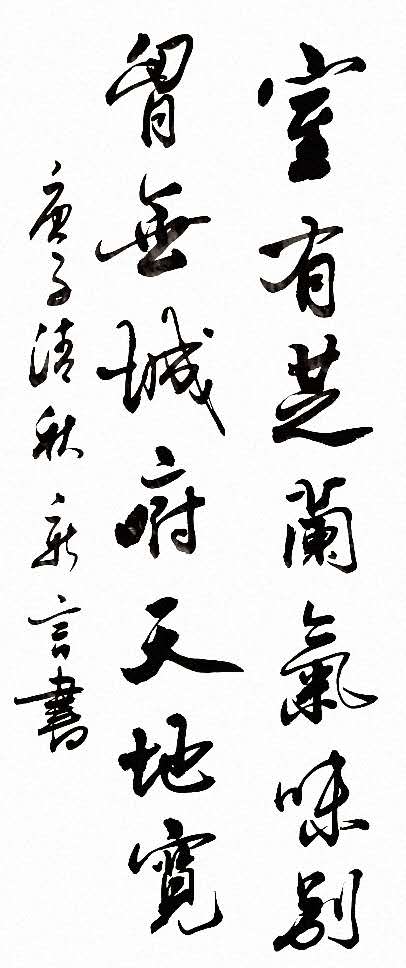 室有芝蘭氣味別
胷無城府天地寬
庚子清秋新言書